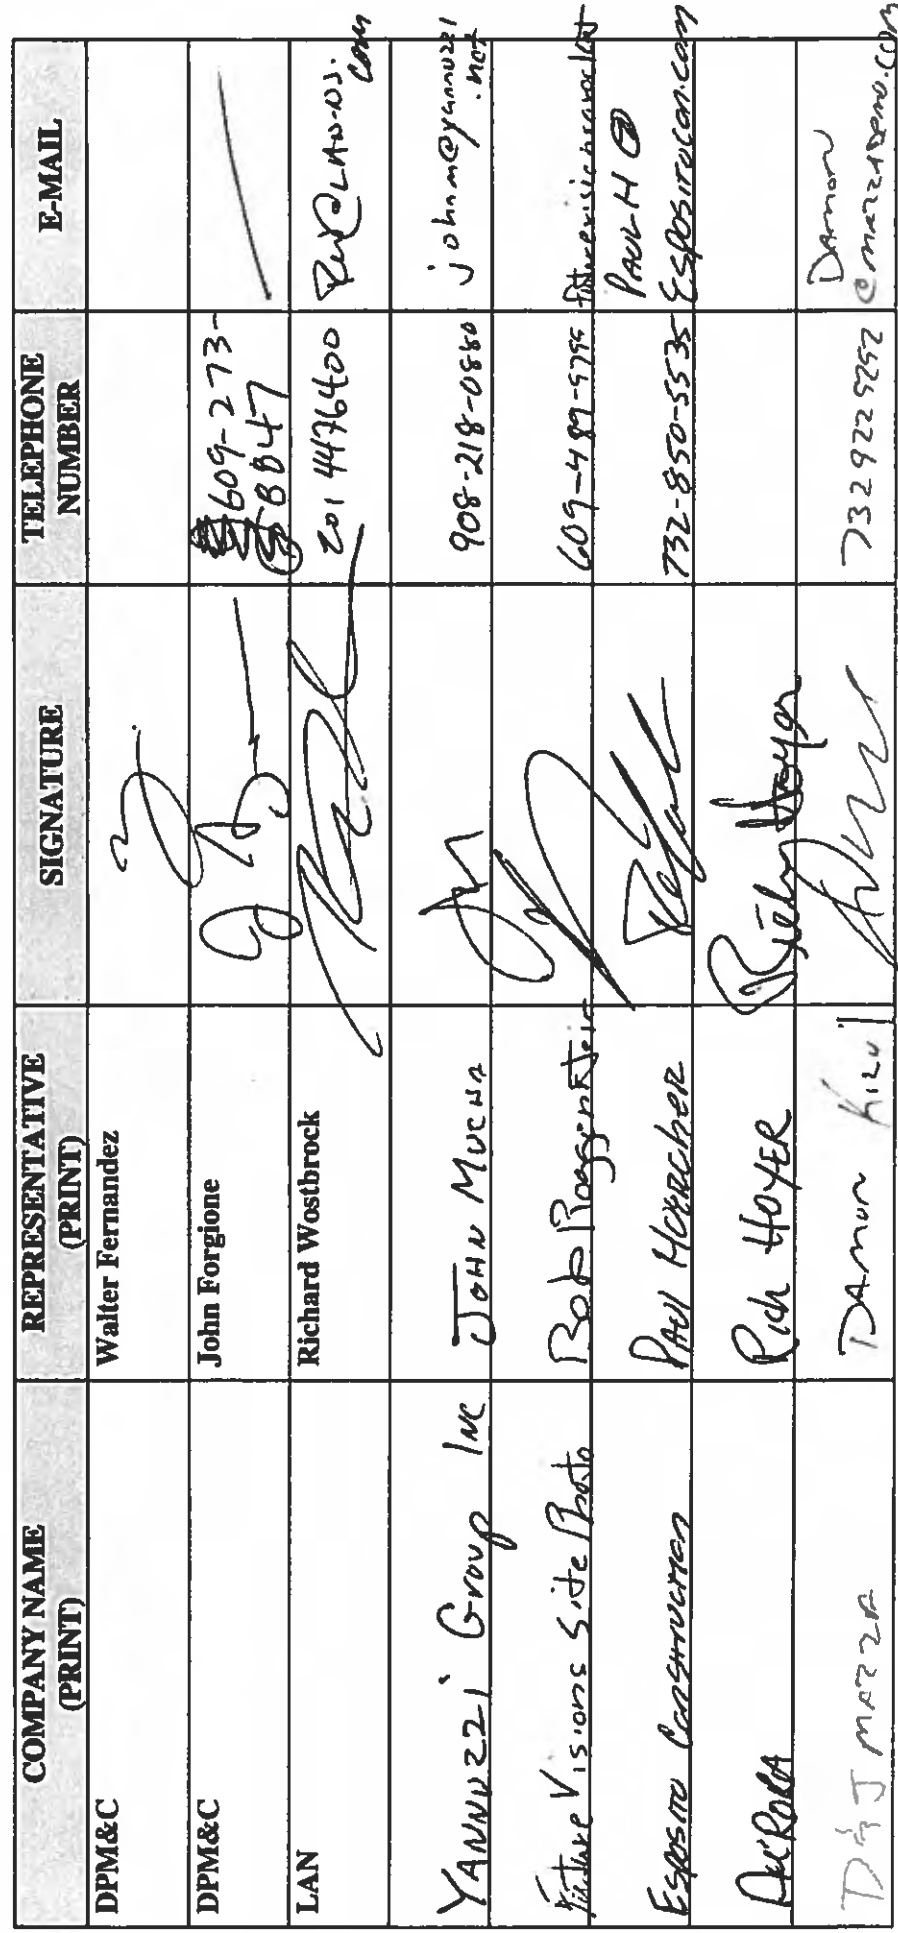 COMPANY NAME (PRINT) REPRESENTATIVE (PRINT) SIGNATURE TELEPHONE NUMBER E-MAIL
DPM&C Walter Fernandez
DPM&C John Forgione 609-273-
8847
LAN Richard Wostbrock 201 4476400 @LAN-NJ.
com
YANNUZZI Group INC JOHN MUCHA 908-218-0880 johnm@yannuzzi
.net
Future Visions Site Photo Bob Roggenstein
Esposito Construction PAUL HOERCHER 732-850-5535 PAULH@
ESPOSITOCON.com
Rich HOYER Rich Hoyer
D & J MAZZA DAMON 7329229292 DAMON
@MAZZADEMO.COM